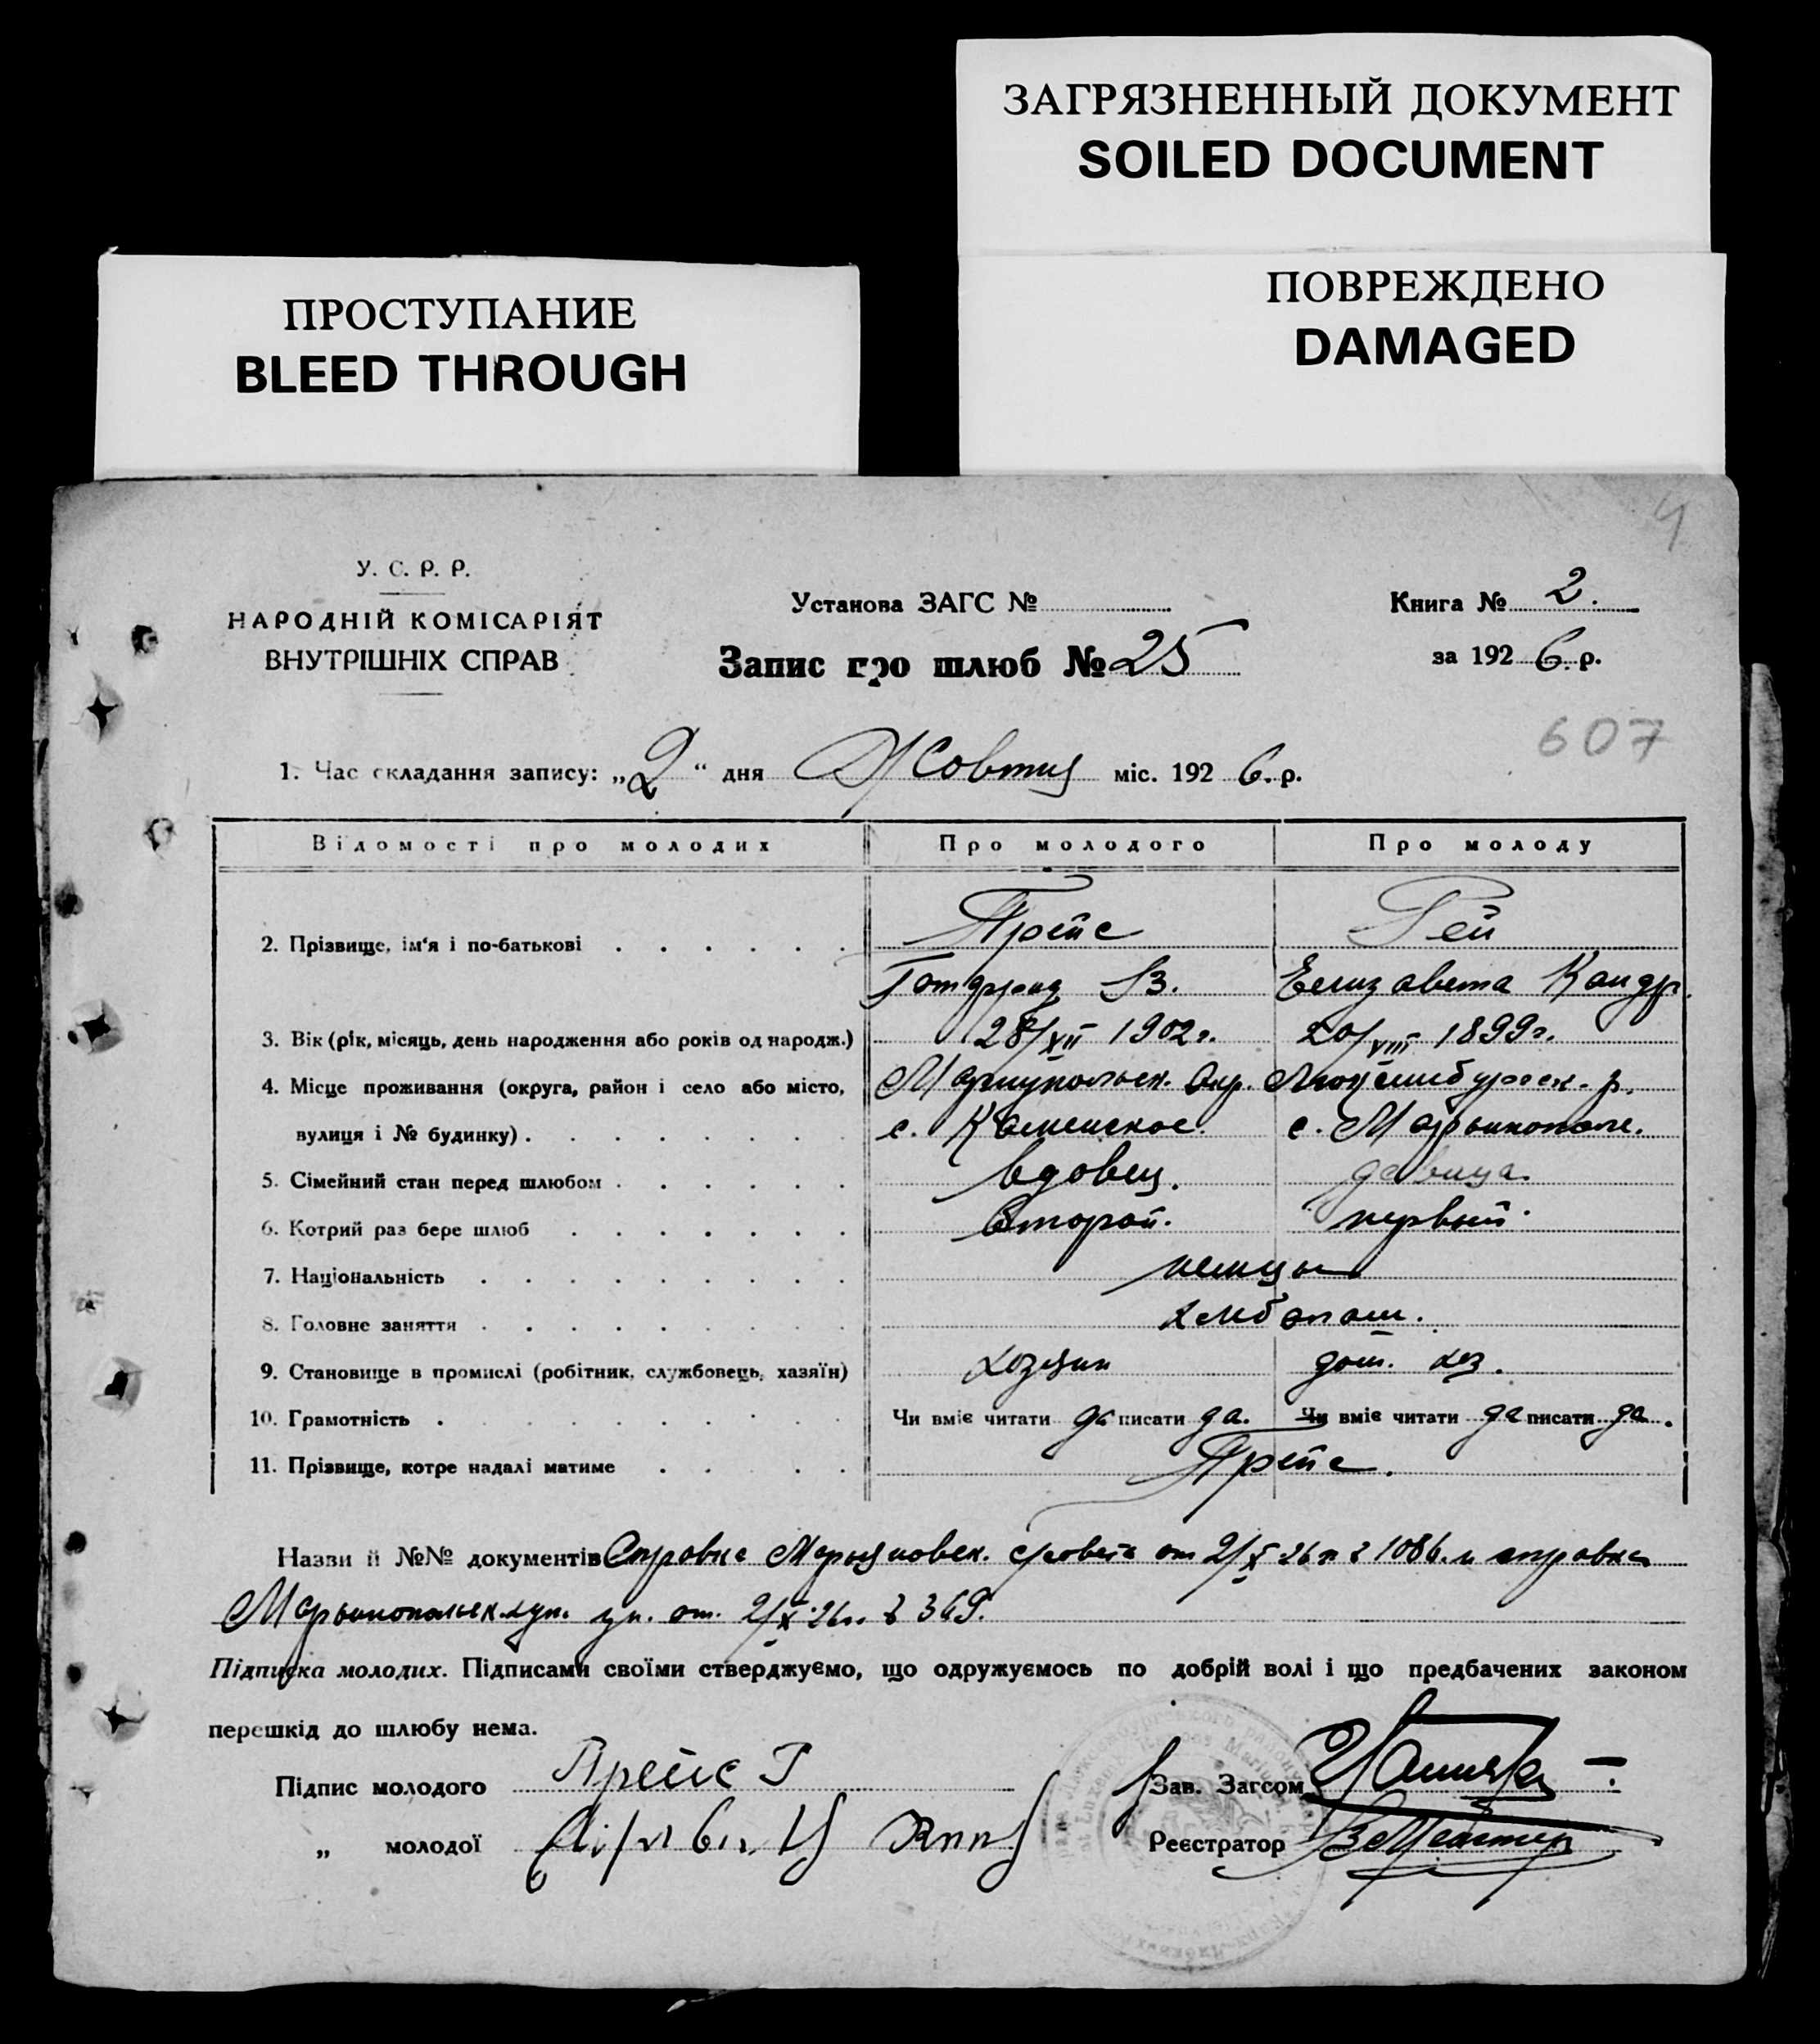 ЗАГРЯЗНЕННЫЙ ДОКУМЕНТ
SOILED DOCUMENT
ПРОСТУПАНИЕ
BLEED THROUGH
ПОВРЕЖДЕНО
DAMAGED
У. С. Р. Р.
НАРОДНІЙ КОМІСАРІЯТ
ВНУТРІШНІХ СПРАВ
Установа ЗАГС №
Запис про шлюб № 25
Книга № 2.
за 192 6. р.
607
1. Час складання запису: „2“ дня Жовтня міс. 192 6. р.
Відомості про молодих Про молодого Про молоду
2. Прізвище, ім'я і по-батькові Прейс Рей
Готфрид Яз. Елизавета Кондр.
3. Вік (рік, місяць, день народження або років од народж.) 28/XII 1902 г. 20/VIII 1899 г.
4. Місце проживання (округа, район і село або місто, Мариупольск. Окр. Люксембургск. р.
вулиця і № будинку). с. Каменское. с. Марьинополе.
5. Сімейний стан перед шлюбом вдовец. девица.
6. Котрий раз бере шлюб второй. первый.
7. Національність немцы
8. Головне заняття хлебопаш.
9. Становище в промислі (робітник, службовець, хазяїн) хозяин дом. хоз.
10. Грамотність Чи вміє читати да писати да. Чи вміє читати да писати да.
11. Прізвище, котре надалі матиме Прейс.
Назви й №№ документів Справка Марьяновск. с/совета от 2/X 26 г. № 1086. и справка
Марьинопольск. от. 2/X 26 г. № 369.
Підписка молодих. Підписами своїми стверджуємо, що одружуємось по добрій волі і що предбачених законом
перешкід до шлюбу нема.
Підпис молодого Прейс Г
Зав. Загсом
„ молодої
Реєстратор